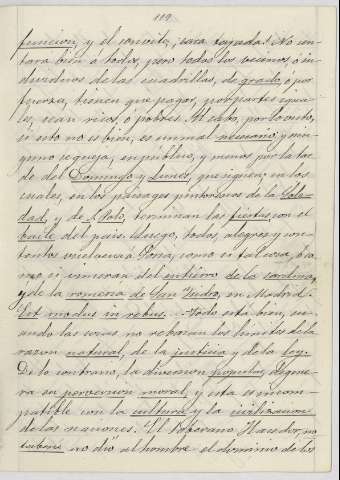 119
funcion, y el convite, ¡cara tajada! No es-
tara bien á todos, pero todos los vecinos, ó in-
dividuos de las cuadrillas, de grado, ó por
fuerza, tienen que pagar, por partes igua-
les, sean ricos, ó pobres. Al cabo, por lo visto,
si esto no es bien, es un mal necesario, y nin-
guno se queja, en público, y menos por la tar-
de del Domingo y Lunes, que siguen, en los
cuales, en los paisages pintorescos de la Sole-
dad, y de S. Polo, terminan las fiestas con el
baile del pais. Luego, todos, alegres y con-
tentos vuelven á Soria, como si tal cosa,
si vinieran del entierro de la sardina,
y de la romeria de San Isidro, en Madrid.
Est modus in rebus. Todo está bien, cu-
ando las cosas no rebasan los limites de la
razon natural, de la justicia y de la ley.
De lo contrario, la diversion popular, degene-
ra en perversion moral, y esta es incom-
patible con la cultura y la civilizacion
de las naciones. El Soberano Hacedor, no
no dió al hombre el dominio de los